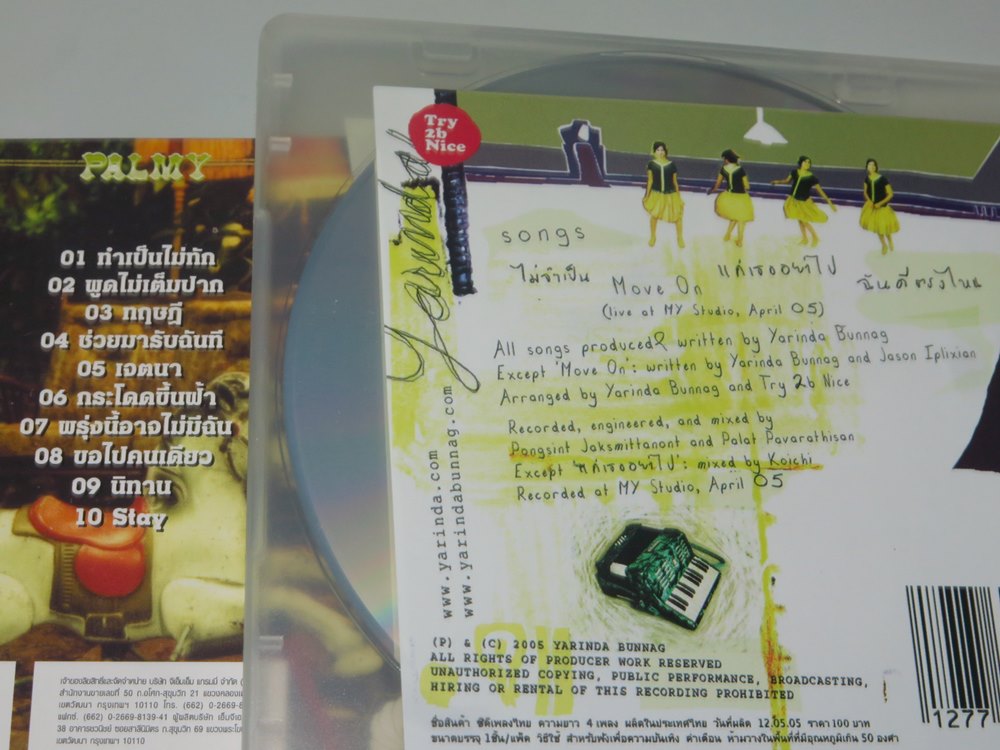 PALMY
01 ทำเป็นไม่ทัก
02 พูดไม่เต็มปาก
03 ทฤษฎี
04 ช่วยมารับฉันที
05 เจตนา
06 กระโดดขึ้นฟ้า
07 พรุ่งนี้อาจไม่มีฉัน
08 ขอไปคนเดียว
09 นิทาน
10 Stay
เจ้าของลิขสิทธิ์และจัดจำหน่าย บริษัท จีเอ็มเอ็ม แกรมมี่ จำกัด (
สำนักงานขายเลขที่ 50 ถ.อโศก-สุขุมวิท 21 แขวงคลองเต
เขตวัฒนา กรุงเทพฯ 10110 โทร. (662) 0-2669
แฟกซ์. (662) 0-2669-8139-41 ผู้ผลิตบริษัท เอ็มจีเอ
38 อาคารชวนิชย์ ซอยสาลีนิมิตร ถ.สุขุมวิท 69 แขวงพระโข
เขตวัฒนา กรุงเทพฯ 10110
Try
2b
Nice
Yarinda
www.yarinda.com
www.yarindabunnag.com
songs
ไม่จำเป็น Move On แค่เธออย่าไป ฉันดีตรงไหน
(live at MY Studio, April 05)
All songs produced & written by Yarinda Bunnag
Except 'Move On': written by Yarinda Bunnag and Jason Iplixian
Arranged by Yarinda Bunnag and Try 2b Nice
Recorded, engineered, and mixed by
Pongsint Jaksmittanont and Palat Pavarathisan
Except 'แค่เธออย่าไป': mixed by Koichi
Recorded at MY Studio, April 05
(P) & (C) 2005 YARINDA BUNNAG
ALL RIGHTS OF PRODUCER WORK RESERVED
UNAUTHORIZED COPYING, PUBLIC PERFORMANCE, BROADCASTING,
HIRING OR RENTAL OF THIS RECORDING PROHIBITED
ชื่อสินค้า ซีดีเพลงไทย ความยาว 4 เพลง ผลิตในประเทศไทย วันที่ผลิต 12.05.05 ราคา 100 บาท
ขนาดบรรจุ 1ชิ้น/แพ็ค วิธีใช้ สำหรับฟังเพื่อความบันเทิง คำเตือน ห้ามวางในพื้นที่ที่มีอุณหภูมิเกิน 50 องศา
1277